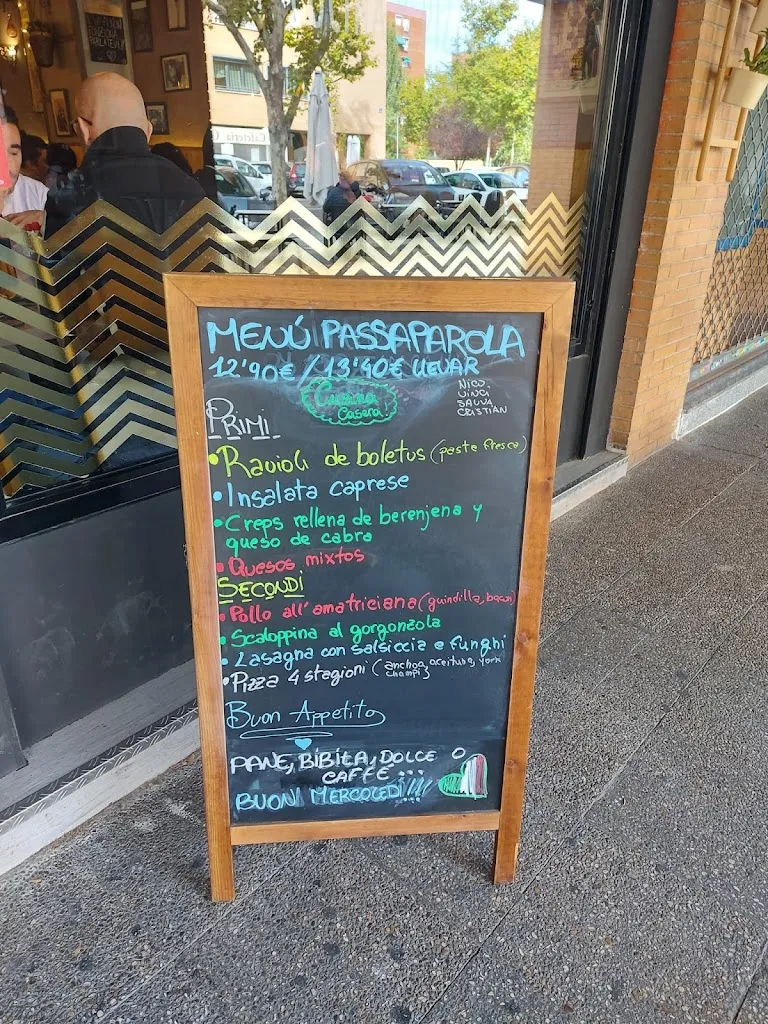 MENÚ PASSAPAROLA
12'90€ / 13'90€ LLEVAR
Cusina
Casera
NICO.
VINCI
SALVA
CRISTIAN
PRIMI
• Ravioli de boletus (pasta fresca)
• Insalata caprese
• Creps rellena de berenjena y
queso de cabra
• Quesos mixtos
SECONDI
• Pollo all'amatriciana (guindilla, bacon)
• Scaloppina al gorgonzola
• Lasagna con salsiccia e funghi
• Pizza 4 stagioni (anchoa, aceituna, york
champi)
Buon Appetito
PANE, BIBITA, DOLCE O
CAFFÉ...
BUON MERCOLEDÍ!!!!...
Cafetería